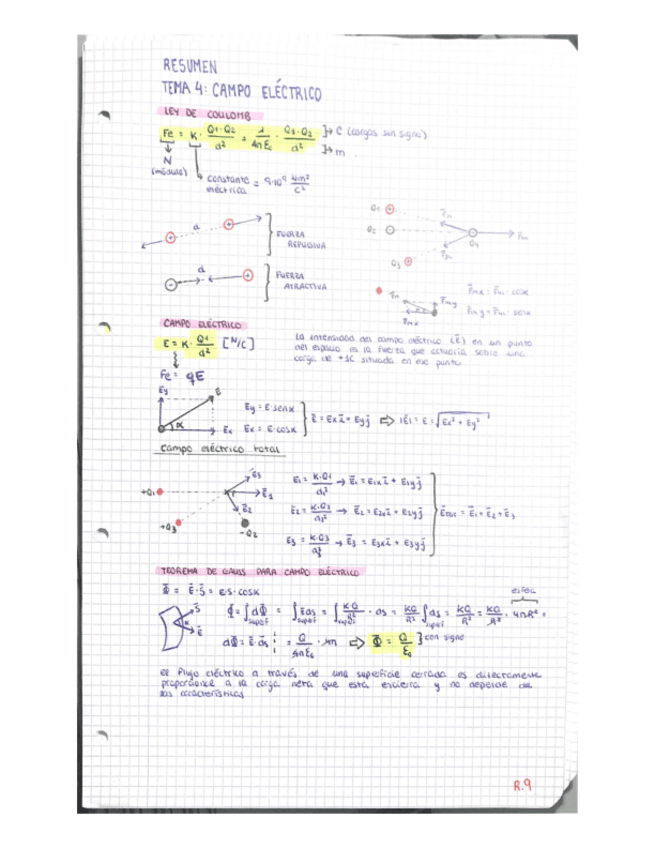 RESUMEN
TEMA 4: CAMPO ELÉCTRICO
LEY DE COULOMB
Fe = K · Q1·Q2/d² = 1/4πε₀ · Q1·Q2/d² ]→ C (cargas sin signo) ]→ m
N
(módulo)
constante eléctrica = 9·10⁹ Nm²/C²
d
FUERZA REPULSIVA
d
FUERZA ATRACTIVA
Q1
Q2
Q3
Q4
CAMPO ELÉCTRICO
E = K · Q1/d² [N/C]
La intensidad del campo eléctrico (E⃗) en un punto
del espacio es la fuerza que actuaría sobre una
carga de +1C situada en ese punto
Fe = qE
Ey
E
α
Ex
Ey = E·senα
Ex = E·cosα
E⃗ = Exi⃗ + Eyj⃗ ⇒ |E⃗| = E = √Ex² + Ey²
Campo eléctrico total
+Q1
+Q3
-Q2
E⃗3
E⃗1
E⃗2
E1 = K·Q1/d1² → E⃗1 = E1xi⃗ + E1yj⃗
E2 = K·Q2/d2² → E⃗2 = E2xi⃗ + E2yj⃗
E3 = K·Q3/d3² → E⃗3 = E3xi⃗ + E3yj⃗
E⃗tot = E⃗1 + E⃗2 + E⃗3
TEOREMA DE GAUSS PARA CAMPO ELÉCTRICO
Φ = E⃗·S⃗ = E·S·cosα
esfera
Φ = ∫dΦ = ∫Eds = ∫KQ/R² · ds = KQ/R² ∫ds = KQ/R² = KQ/R² · 4πR² =
dΦ = E⃗·ds⃗ = Q/4πε₀ · 4π ⇒ Φ = Q/ε₀ ] con signo
El flujo eléctrico a través de una superficie cerrada es directamente
proporcional a la carga neta que esta encierra y no depende de
sus características
R.9